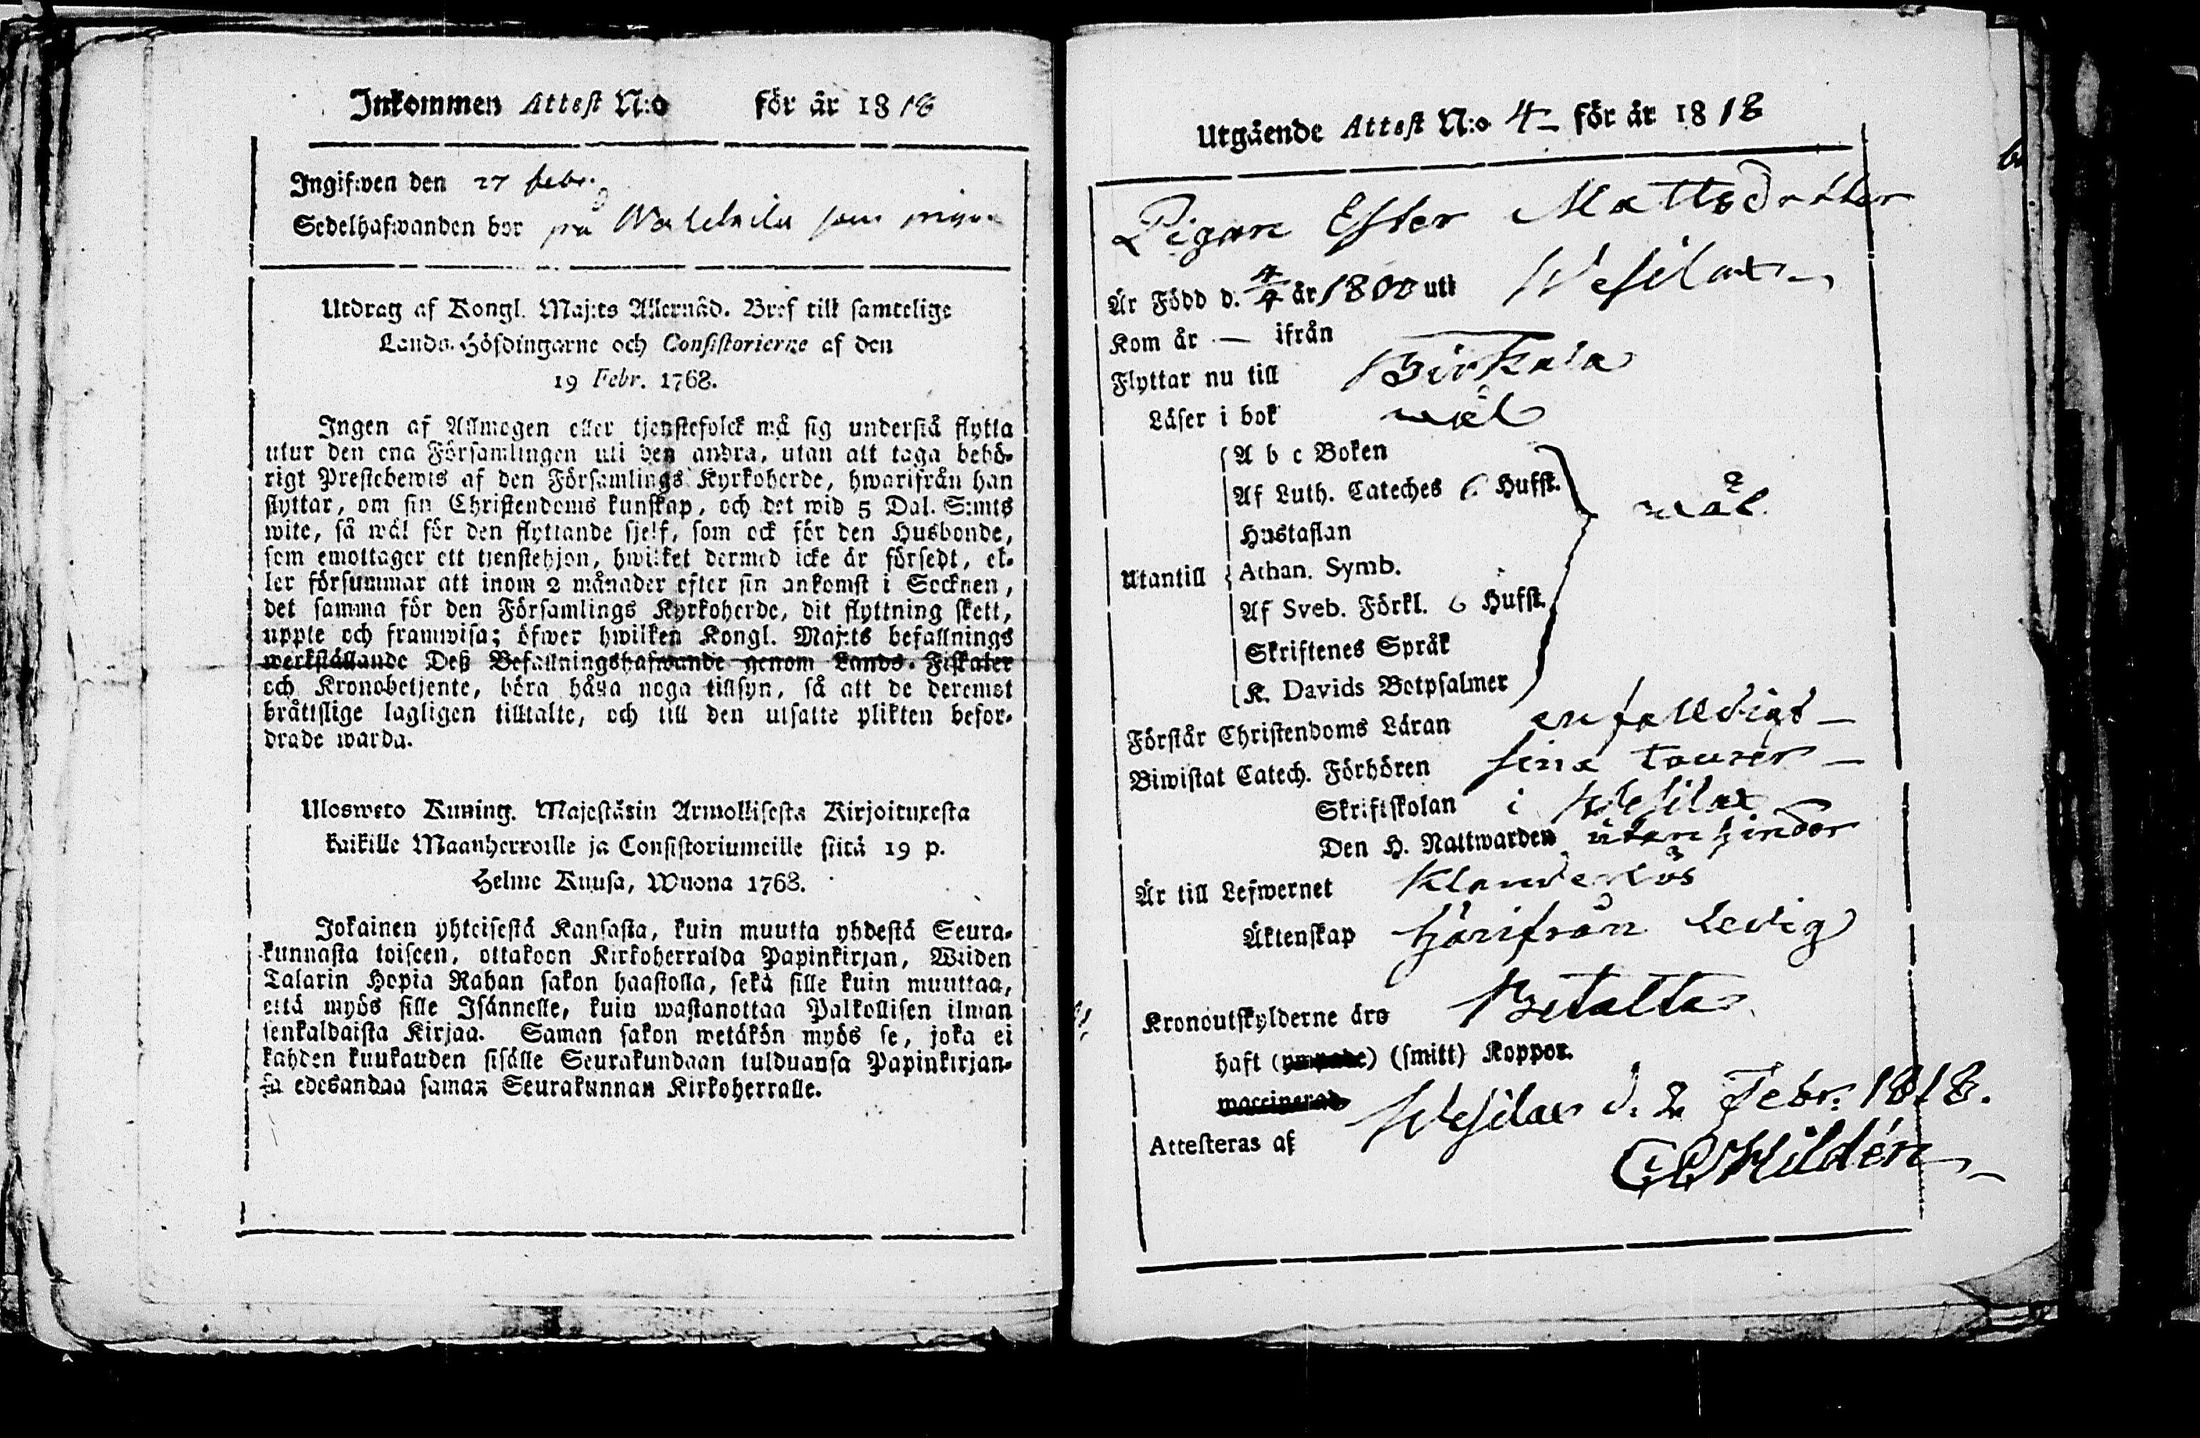 Inkommen Attest N:o för år 1818
Ingifwen den 27 febr.
Sedelhafwanden bor på som piga
Utdrag af Kongl. Maj:ts Allernåd. Bref till samtelige
Lands-Höfdingarne och Consistorierne af den
19 Febr. 1768.
Ingen af Allmogen eller tjenstefolck må sig understå flytta
utur den ena Församlingen uti den andra, utan att taga behö-
rigt Prestebewis af den Församlings Kyrkoherde, hwarifrån han
flyttar, om sin Christendoms kunskap, och det wid 5 Dal. S:mts
wite, så wäl för den flyttande sjelf, som ock för den Husbonde,
som emottager ett tjenstehjon, hwilket dermed icke är försedt, el-
ler försummar att inom 2 månader efter sin ankomst i Socknen,
det samma för den Församlings Kyrkoherde, dit flyttning skett,
uppte och framwisa; öfwer hwilken Kongl. Maj:ts befallnings
werkställande Deß Befallningshafwande genom Lands-Fiskaler
och Kronobetjente, böra hafwa noga tillsyn, så att de deremot
bråttslige lagligen tilltalte, och till den utsatte plikten befor-
drade warda.
Ulosweto Kuning. Majestätin Armollisesta Kirjoituxesta
kaikille Maanherroille ja Consistoriumeille siitä 19 p.
Helme Kuusa, Wuona 1768.
Jokainen yhteisestä Kansasta, kuin muutta yhdestä Seura-
kunnasta toiseen, ottakoon Kirkoherralda Papinkirjan, Wiiden
Talarin Hopia Rahan sakon haastolla, sekä sille kuin muuttaa,
että myös sille Isännelle, kuin wastanottaa Palkollisen ilman
senkaldaista Kirjaa. Saman sakon wetäkön myös se, joka ei
kahden kuukauden sisälle Seurakundaan tulduansa Papinkirjan-
sa edesandaa saman Seurakunnan Kirkoherralle.
Utgående Attest N:o 4 för år 1818
Pigan Ester Mattsdotter
Är Född d. 4/4 år 1800 uti Wesilax
Kom år — ifrån
Flyttar nu till Birkala
Läser i bok wäl
A b c Boken
Af Luth. Cateches 6 Hufst.
Hustaflan
Utantill Athan. Symb. wäl
Af Sveb. Förkl. 6 Hufst.
Skriftenes Språk
K. Davids Botpsalmer
Förstår Christendoms Läran enfalldigt
Biwistat Catech. Förhören sine tourer
Skriftskolan i Wesilax
Den H. Nattwarden utan hinder
Är till Lefwernet Klanderlös
Äktenskap Härifrån ledig
Kronoutskylderne äro Betalta
haft (ympade) (smitt) Koppor.
waccinerad
Attesteras af Wesilax d. 2 Febr. 1818.
Hildén